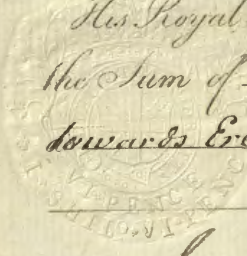 His Royal
the Sum of
towards Er
VI PENCE
SHIL VI PEN